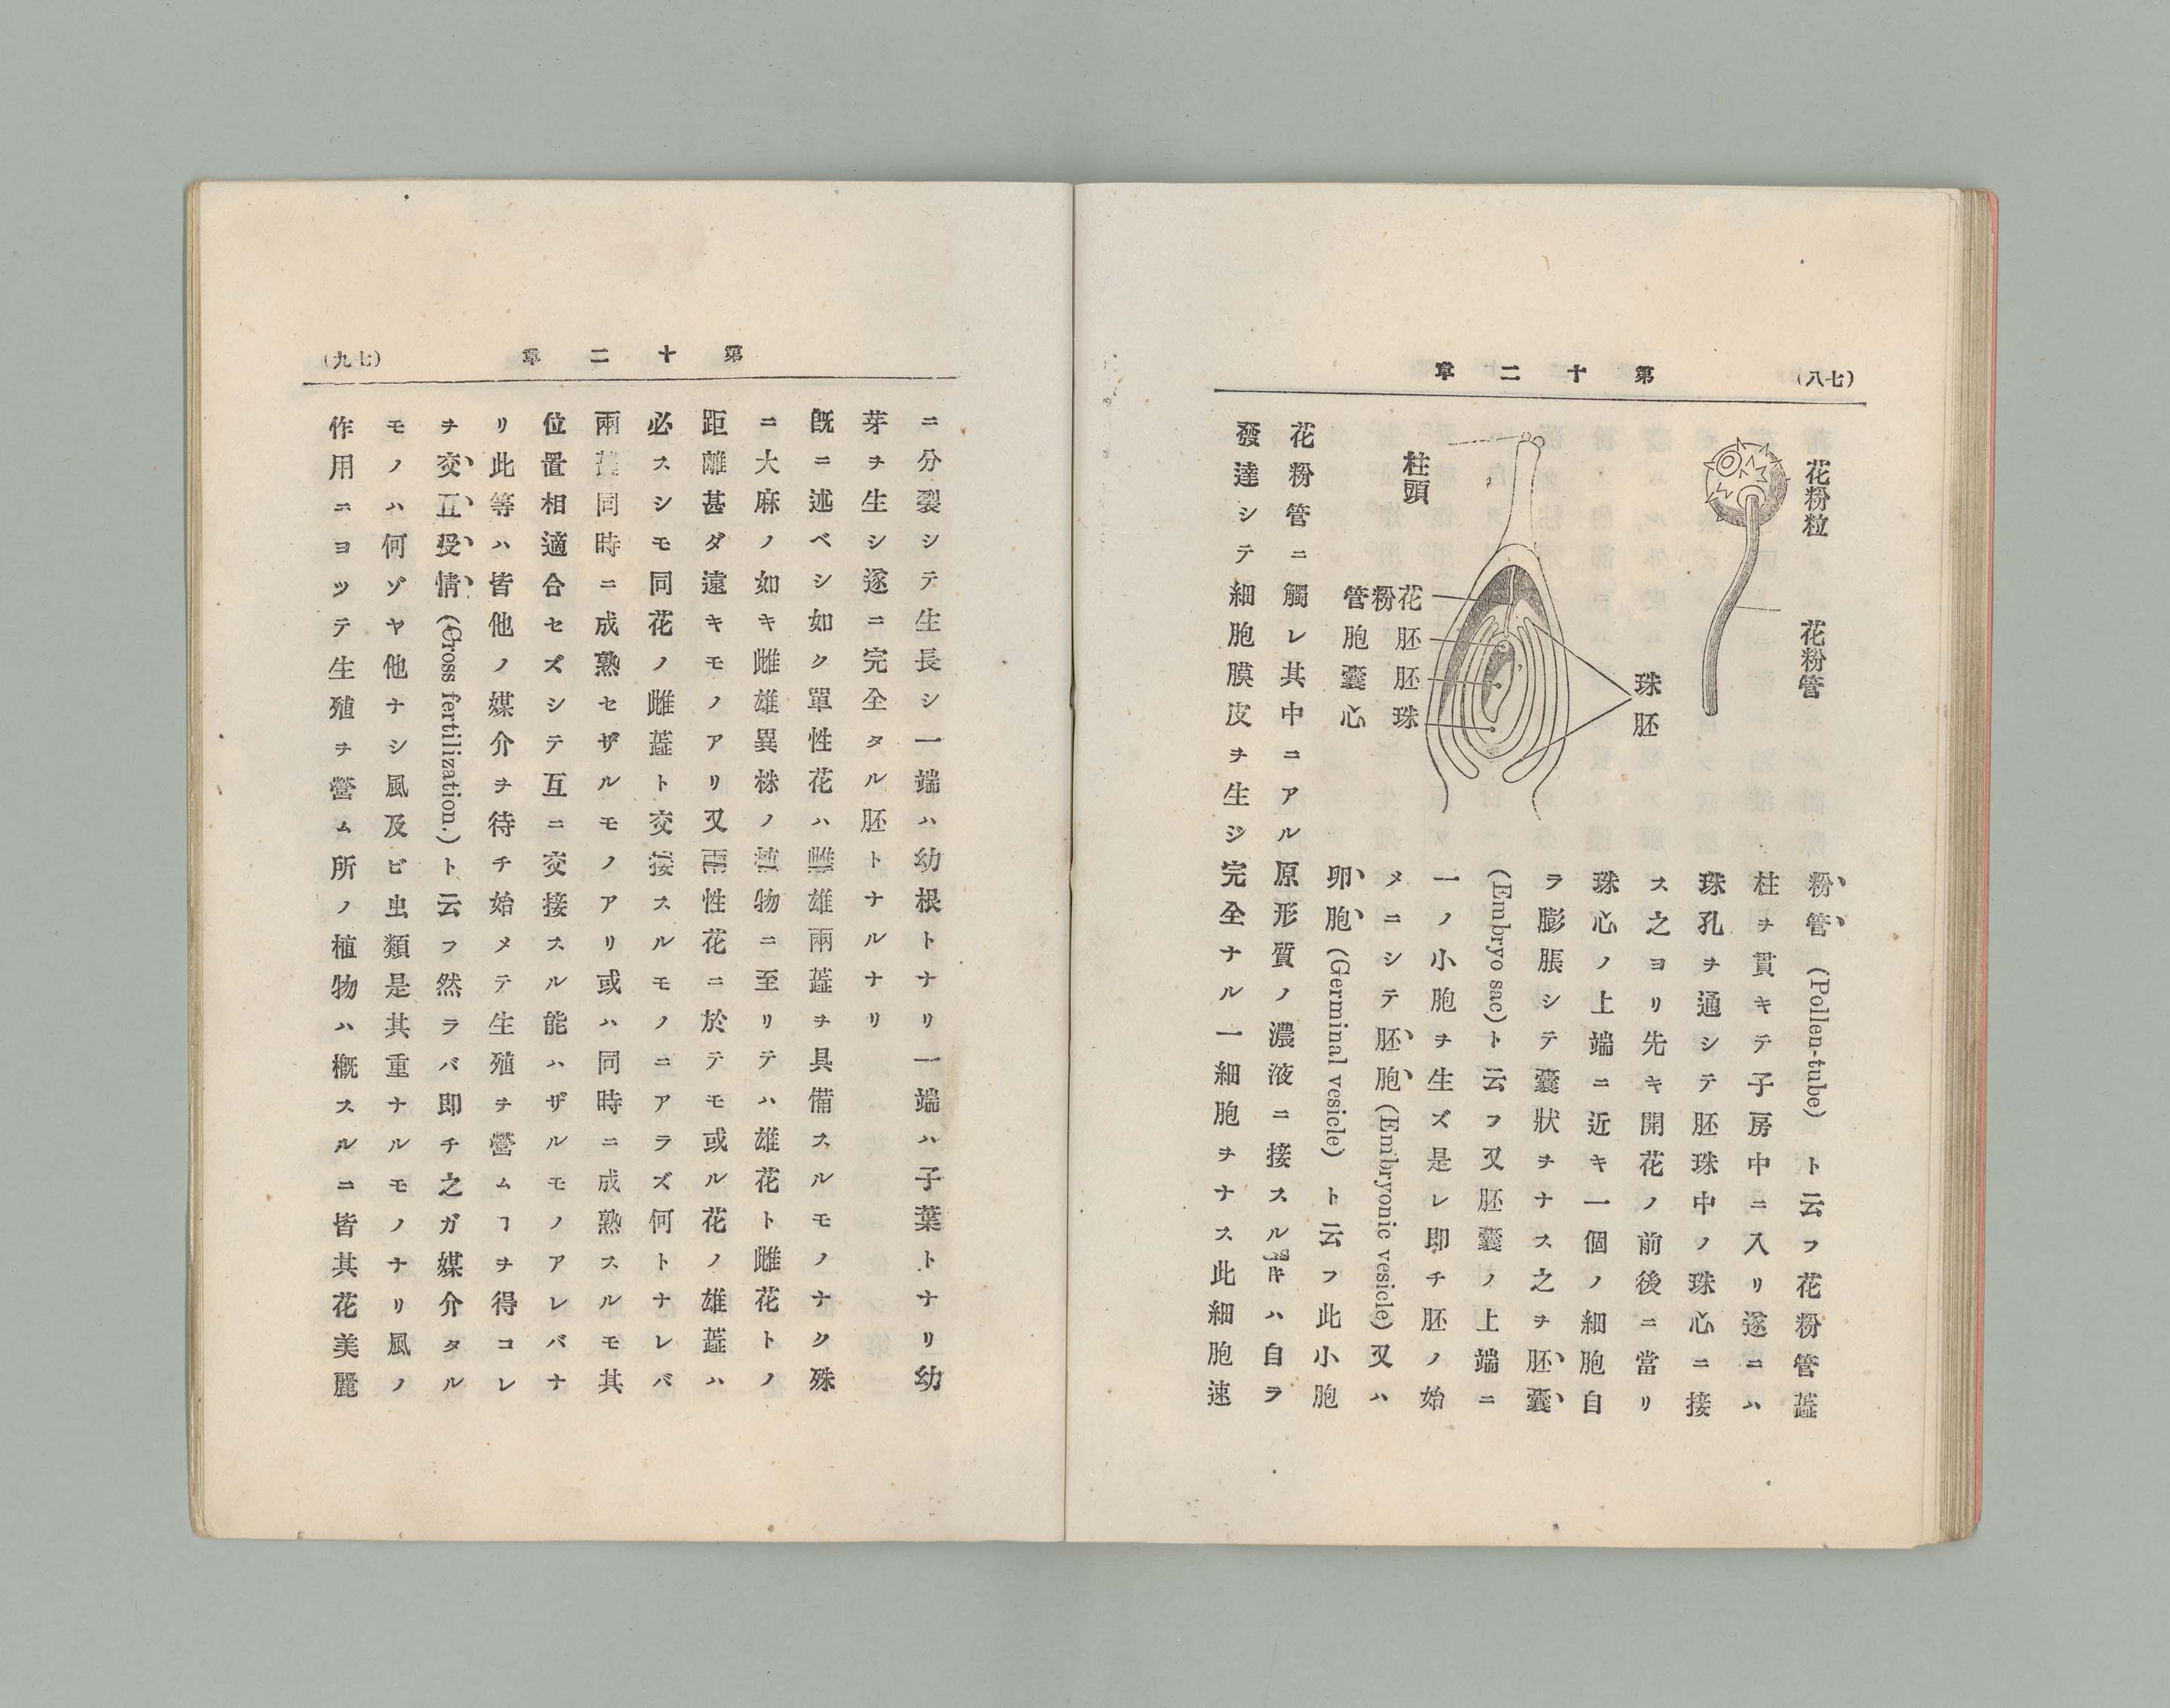 (七八)
第十二章
花粉粒
花粉管
珠胚
柱頭
花粉管
胚胞
胚囊
珠心
粉管 (Pollen-tube) ト云フ花粉管蘂
柱ヲ貫キテ子房中ニ入リ遂ニハ
珠孔ヲ通シテ胚珠中ノ珠心ニ接
ス之ヨリ先キ開花ノ前後ニ當リ
珠心ノ上端ニ近キ一個ノ細胞自
ラ膨脹シテ囊狀ヲナス之ヲ胚囊
(Embryo sac)ト云フ又胚囊ノ上端ニ
一ノ小胞ヲ生ズ是レ即チ胚ノ始
メニシテ胚胞(Embryonic vesicle)又ハ
卵胞(Germinal vesicle)ト云フ此小胞
花粉管ニ觸レ其中ニアル原形質ノ濃液ニ接スルキハ自ラ
發達シテ細胞膜皮ヲ生ジ完全ナル一細胞ヲナス此細胞速
(七九)
第十二章
ニ分裂シテ生長シ一端ハ幼根トナリ一端ハ子葉トナリ幼
芽ヲ生シ遂ニ完全タル胚トナルナリ
旣ニ述ベシ如ク單性花ハ雌雄兩蘂ヲ具備スルモノナク殊
ニ大麻ノ如キ雌雄異株ノ植物ニ至リテハ雄花ト雌花トノ
距離甚ダ遠キモノアリ又兩性花ニ於テモ或ル花ノ雄蘂ハ
必スシモ同花ノ雌蘂ト交接スルモノニアラズ何トナレバ
兩蘂同時ニ成熟セザルモノアリ或ハ同時ニ成熟スルモ其
位置相適合セズシテ互ニ交接スル能ハザルモノアレバナ
リ此等ハ皆他ノ媒介ヲ待チ始メテ生殖ヲ營ムヿヲ得コレ
ヲ交互受情(Cross fertilization.)ト云フ然ラバ即チ之ガ媒介タル
モノハ何ゾヤ他ナシ風及ビ虫類是其重ナルモノナリ風ノ
作用ニヨッテ生殖ヲ營ム所ノ植物ハ概スルニ皆其花美麗